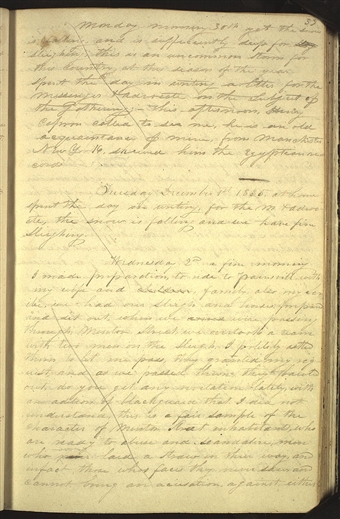 33
Monday morning 30th yet the snow
is falling and is sufficiently deep for
sleighing, this is an uncommon storm for
this country at this season of the year
spent the day in writing a letter for the
Messenger &
the Gathering; this afternoon, Henry
called to see me, he is an old
acquaintance of mine, from
New Y. I showed him the Egyptian
Tuesday December 1st 1835 at home
spent the day in writing, for the M &
the snow is falling and we have fine
Sleighing
Wednesday 2d a fine morning
I made preparation to ride to Painesville with
my wife and children, family, also my
we had our sleigh and horses prepared
and set out, when we arived were passing
through Mentor Street we overtook a team
with two men on the sleigh I politely asked
them to let me pass, they granted my
request, and as we passed them they bawled
out, do you get any revelation lately, with
an adition of blackguard that I did not
understand, this is a fair sample of the
character of Mentor Street inhabitants, who
are ready to abuse and scandalize, men
who laid a straw in their way, and
infact those who's faces they never saw and
cannot bring an acusation, against either